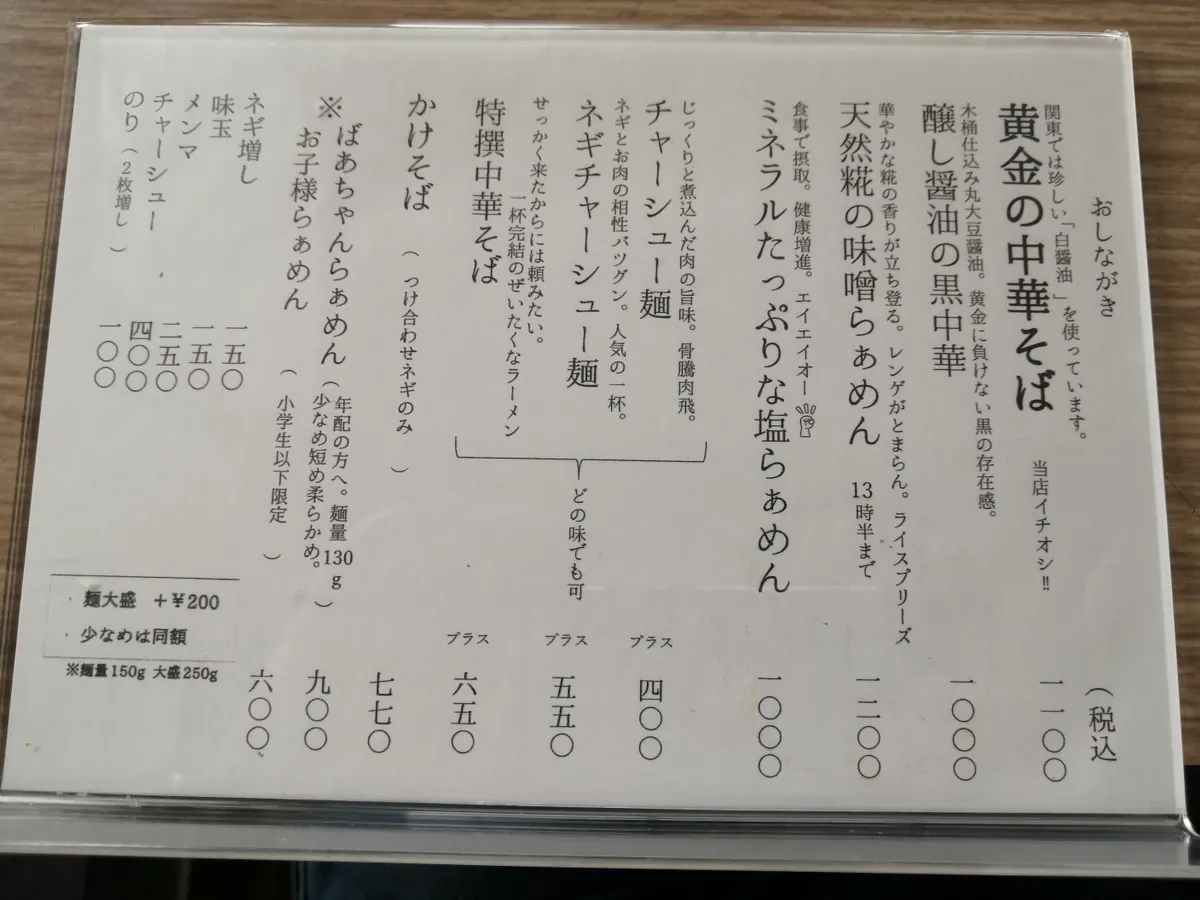 おしながき
（税込
関東では珍しい「白醤油」を使っています。
黄金の中華そば 当店イチオシ!! 一一〇〇
木桶仕込み丸大豆醤油。黄金に負けない黒の存在感。
醸し醤油の黒中華 一〇〇〇
華やかな糀の香りが立ち登る。レンゲがとまらん。ライスプリーズ
天然糀の味噌らぁめん 13時半まで 一二〇〇
食事で摂取。健康増進。エイエイオー
ミネラルたっぷりな塩らぁめん 一〇〇〇
じっくりと煮込んだ肉の旨味。骨騰肉飛。
チャーシュー麺 プラス 四〇〇
ネギとお肉の相性バツグン。人気の一杯。
ネギチャーシュー麺 プラス 五五〇
どの味でも可
せっかく来たからには頼みたい。
一杯完結のぜいたくなラーメン
特撰中華そば プラス 六五〇
かけそば （つけ合わせネギのみ） 七七〇
※ばあちゃんらぁめん（年配の方へ。麺量130g
少なめ短め柔らかめ。） 九〇〇
お子様らぁめん （小学生以下限定） 六〇〇
ネギ増し 一五〇
味玉 一五〇
メンマ 二五〇
チャーシュー 四〇〇
のり（2枚増し） 一〇〇
麺大盛 +¥200
少なめは同額
※麺量150g 大盛250g